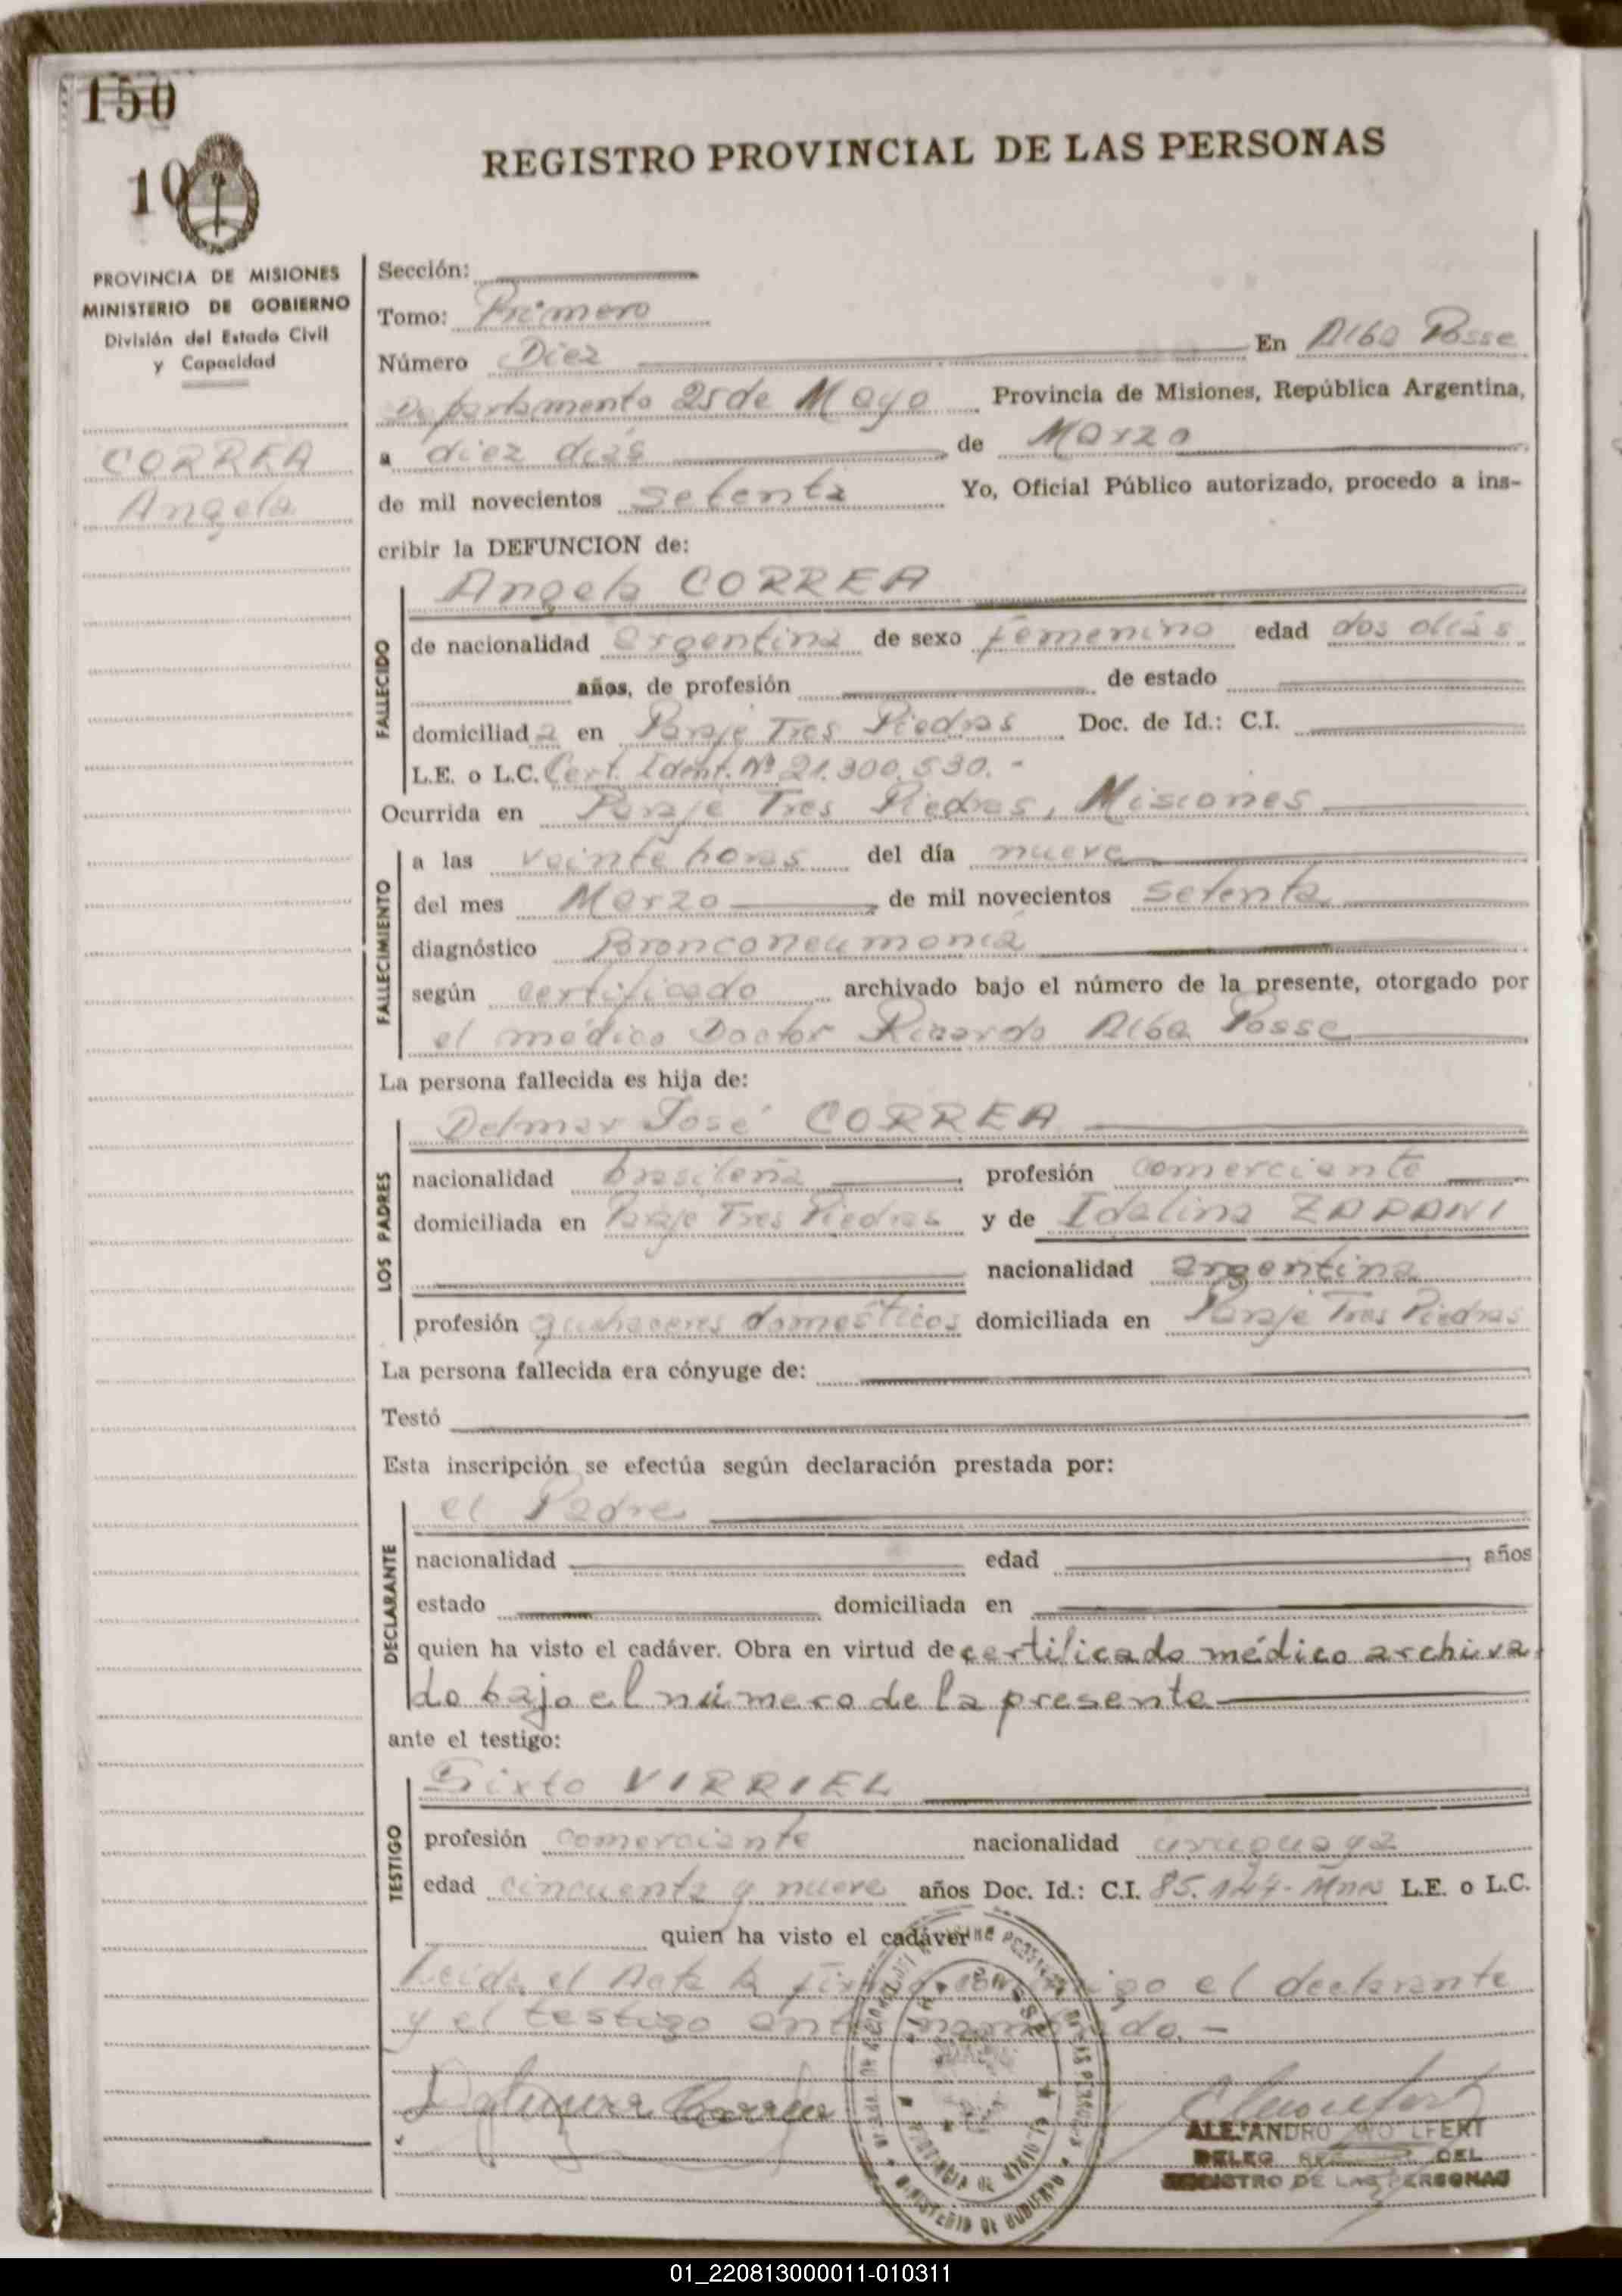 150
10
REGISTRO PROVINCIAL DE LAS PERSONAS
PROVINCIA DE MISIONES
MINISTERIO DE GOBIERNO
División del Estado Civil
y Capacidad
CORREA
Angela
Sección:
Tomo: Primero
Número Diez En Alba Posse
Departamento 25 de Mayo Provincia de Misiones, República Argentina,
a diez días de Marzo
de mil novecientos setenta Yo, Oficial Público autorizado, procedo a ins-
cribir la DEFUNCION de:
FALLECIDO
Angela CORREA
de nacionalidad argentina de sexo femenino edad dos días
años, de profesión de estado
domiciliada en Paraje Tres Piedras Doc. de Id.: C.I.
L.E. o L.C. Cert. Ident. Nº 21.300.530.-
Ocurrida en Paraje Tres Piedras, Misiones
FALLECIMIENTO
a las veinte horas del día nueve
del mes Marzo de mil novecientos setenta
diagnóstico Bronconeumonía
según certificado archivado bajo el número de la presente, otorgado por
el médico Doctor Ricardo Alba Posse
La persona fallecida es hija de:
LOS PADRES
Delmar José CORREA
nacionalidad brasileña profesión comerciante
domiciliada en Paraje Tres Piedras y de Idalina ZAPANI
nacionalidad argentina
profesión quehaceres domésticos domiciliada en Paraje Tres Piedras
La persona fallecida era cónyuge de:
Testó
Esta inscripción se efectúa según declaración prestada por:
DECLARANTE
el Padre
nacionalidad edad años
estado domiciliada en
quien ha visto el cadáver. Obra en virtud de certificado médico archiva
do bajo el número de la presente
ante el testigo:
TESTIGO
Sixto VIRRIEL
profesión comerciante nacionalidad uruguaya
edad cincuenta y nueve años Doc. Id.: C.I. 85.147- Mnes L.E. o L.C.
quien ha visto el cadáver
Leída el Acta la el declarante
y el testigo do.-
Correa
ALEJANDRO WOLFERT
DELEG DEL
REGISTRO DE LAS PERSONAS
PROVINCIA DE MISIONES
MINISTERIO DE GOBIERNO
01_220813000011-010311